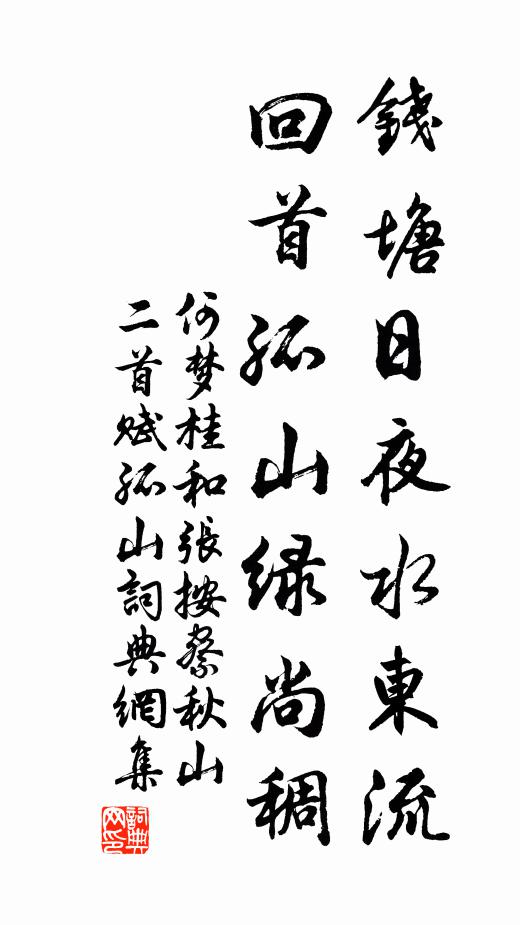 錢塘日夜水東流
回首孤山绿尚稠
何梦桂和張按察秋山
二首赋孤山詞典網集
詞典
网印